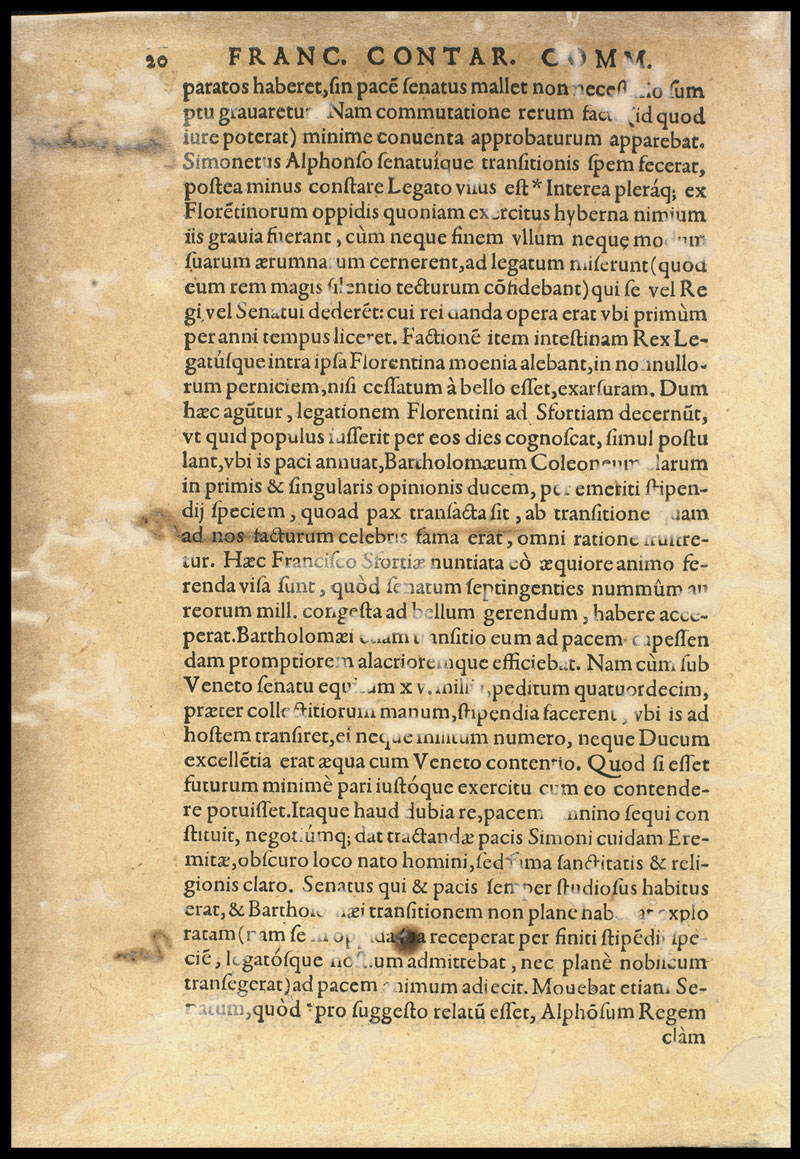 20 FRANC. CONTAR. COMM.
paratos haberet, ſin pacē ſenatus mallet non ſum
ptu grauaretur Nam commutatione rerum id quod
iure poterat) minime conuenta approbaturum apparebat.
Simonetus Alphonſo ſenatuíque tranſitionis ſpem fecerat,
poſtea minus conſtare Legato viſus eſt * Interea pleráq; ex
Florētinorum oppidis quoniam exercitus hyberna nimium
iis grauia fuerant, cùm neque finem vllum neque
ſuarum ærumnarum cernerent, ad legatum miſerunt (quod
eum rem magis ſilentio tecturum cōfidebant) qui ſe vel Re
gi, vel Senatui dederēt: cui rei danda opera erat vbi primùm
per anni tempus liceret. Factionē item inteſtinam Rex Le-
gatúſque intra ipſa Florentina moenia alebant, in nonnullo-
rum perniciem, niſi ceſſatum à bello eſſet, exarſuram. Dum
hæc agūtur, legationem Florentini ad Sfortiam decernūt,
vt quid populus iuſſerit per eos dies cognoſcat, ſimul poſtu
lant, vbi is paci annuat, Bartholomæum Coleoneum clarum
in primis & ſingularis opinionis ducem, per emeriti ſtipen-
dij ſpeciem, quoad pax tranſacta ſit, ab tranſitione quam
ad nos facturum celebris fama erat, omni ratione
tur. Hæc Franciſco Sfortiæ nuntiata eò æquiore animo fe-
renda viſa ſunt, quòd ſenatum ſeptingenties nummûm au
reorum mill. congeſta ad bellum gerendum, habere acce-
perat. Bartholomæi etiam tranſitio eum ad pacem capeſſen
dam promptiorem alacrioremque efficiebat. Nam cùm ſub
Veneto ſenatu equitum x v. mill. peditum quatuordecim,
præter collectitiorum manum, ſtipendia facerent, vbi is ad
hoſtem tranſiret, ei neque militum numero, neque Ducum
excellētia erat æqua cum Veneto contentio. Quod ſi eſſet
futurum minimè pari iuſtóque exercitu cum eo contende-
re potuiſſet. Itaque haud dubia re, pacem omnino ſequi con
ſtituit, negotiúmq; dat tractandæ pacis Simoni cuidam Ere-
mitæ, obſcuro loco nato homini, ſed fama ſanctitatis & reli-
gionis claro. Senatus qui & pacis ſemper ſtudioſus habitus
erat, & Bartholomæi tranſitionem non plane explo
ratam (nam ſe receperat per finiti ſtipēdij ſpe
ciē, legatóſque admittebat, nec planè nobiſcum
tranſegerat) ad pacem animum adiecit. Mouebat etiam Se-
natum, quòd * pro ſuggeſto relatū eſſet, Alphōſum Regem
clàm